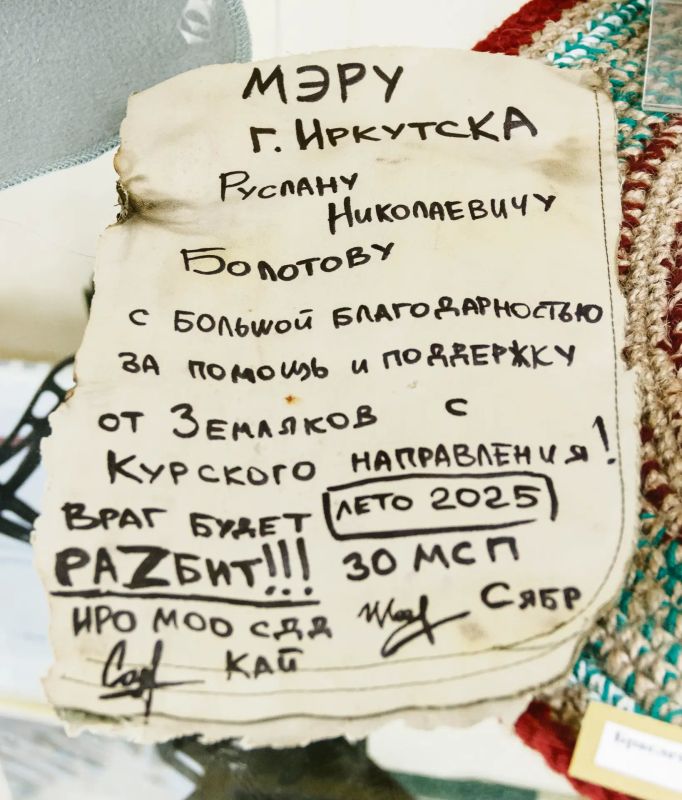 МЭРУ
Г. ИРКУТСКА
РУСЛАНУ
НИКОЛАЕВИЧУ
БОЛОТОВУ
С БОЛЬШОЙ БЛАГОДАРНОСТЬЮ
ЗА ПОМОЩЬ И ПОДДЕРЖКУ
ОТ ЗЕМЛЯКОВ С
КУРСКОГО НАПРАВЛЕНИЯ!
ВРАГ БУДЕТ ЛЕТО 2025
РАZБИТ!!! 30 МСП
ИРО МОО СДД СЯБР
КАЙ